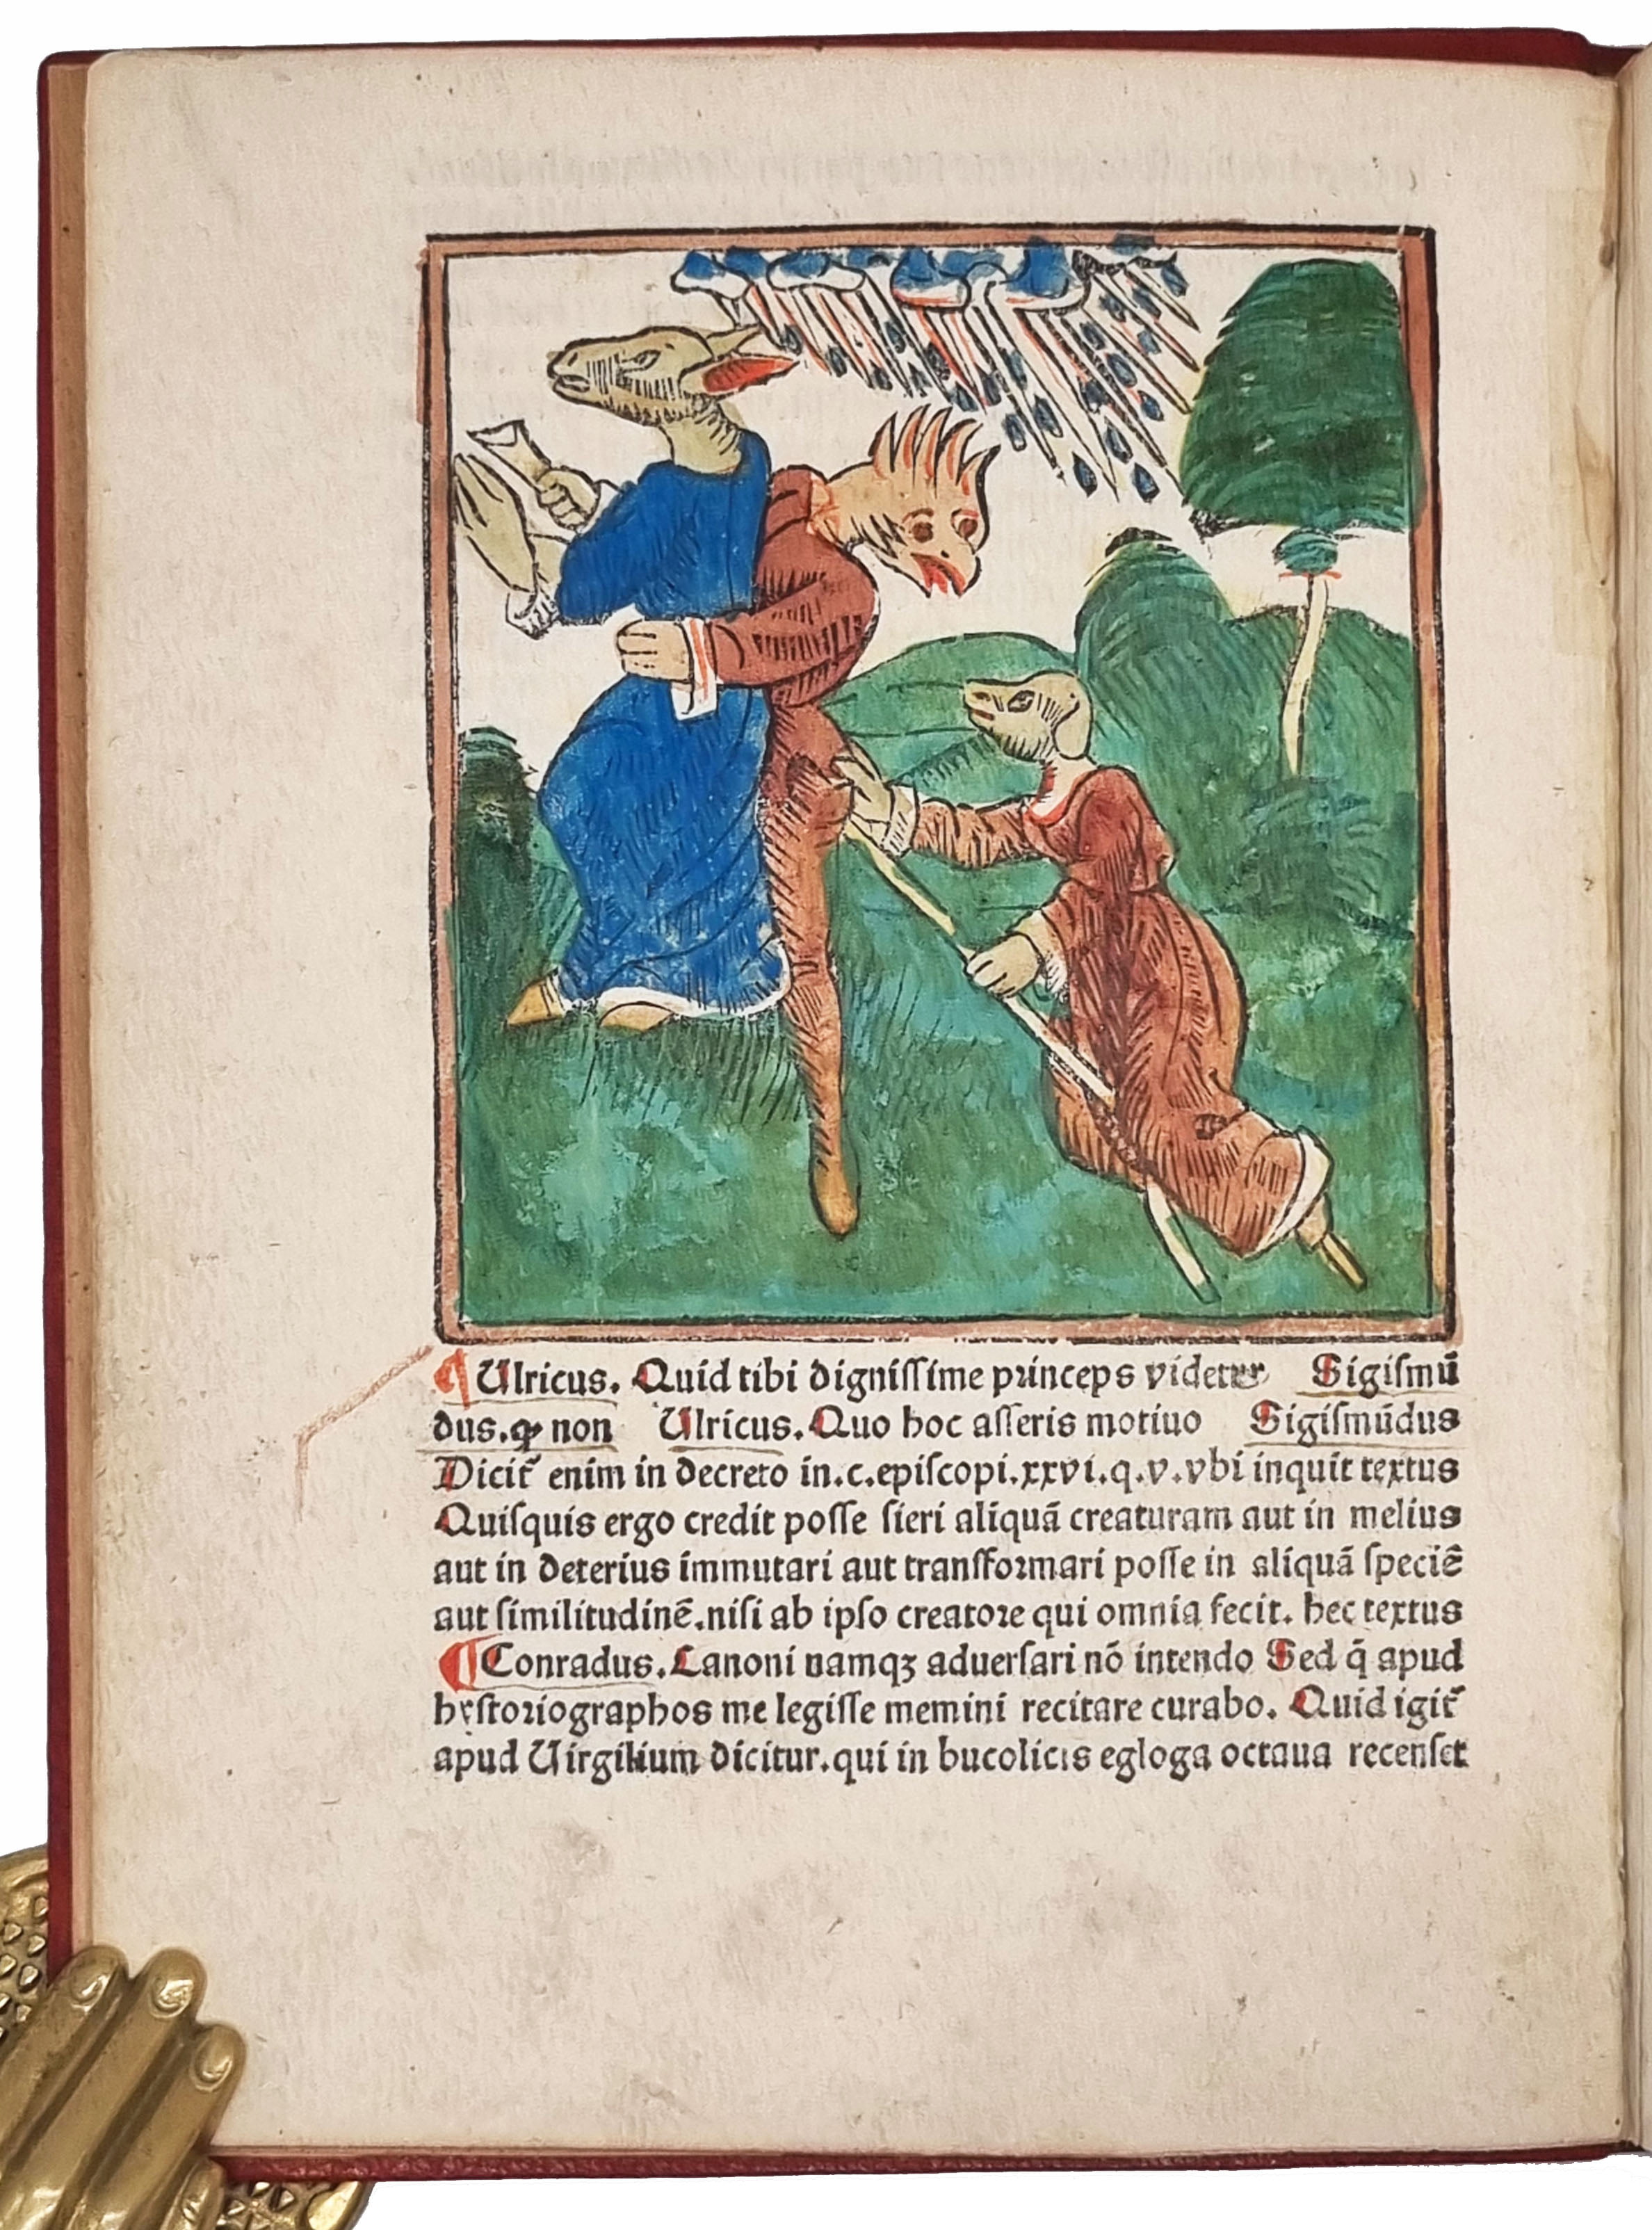 ¶ Ulricus. Quid tibi digniſſime princeps videtur Sigiſmū
dus. ꝙ non Ulricus. Quo hoc aſſeris motiuo Sigiſmūdus
Dicit᷑ enim in decreto in.c.epiſcopi.xxvi.q.v.vbi inquit textus
Quiſquis ergo credit poſſe fieri aliquā creaturam aut in melius
aut in deterius immutari aut tranſformari poſſe in aliquā ſpeciē
aut ſimilitudinē.niſi ab ipſo creatore qui omnia fecit. hec textus
¶ Conradus. Canoni namqꝫ aduerſari nō intendo Sed q̄ apud
hyſtoriographos me legiſſe memini recitare curabo. Quid igit᷑
apud Uirgilium dicitur.qui in bucolicis egloga octaua recenſet